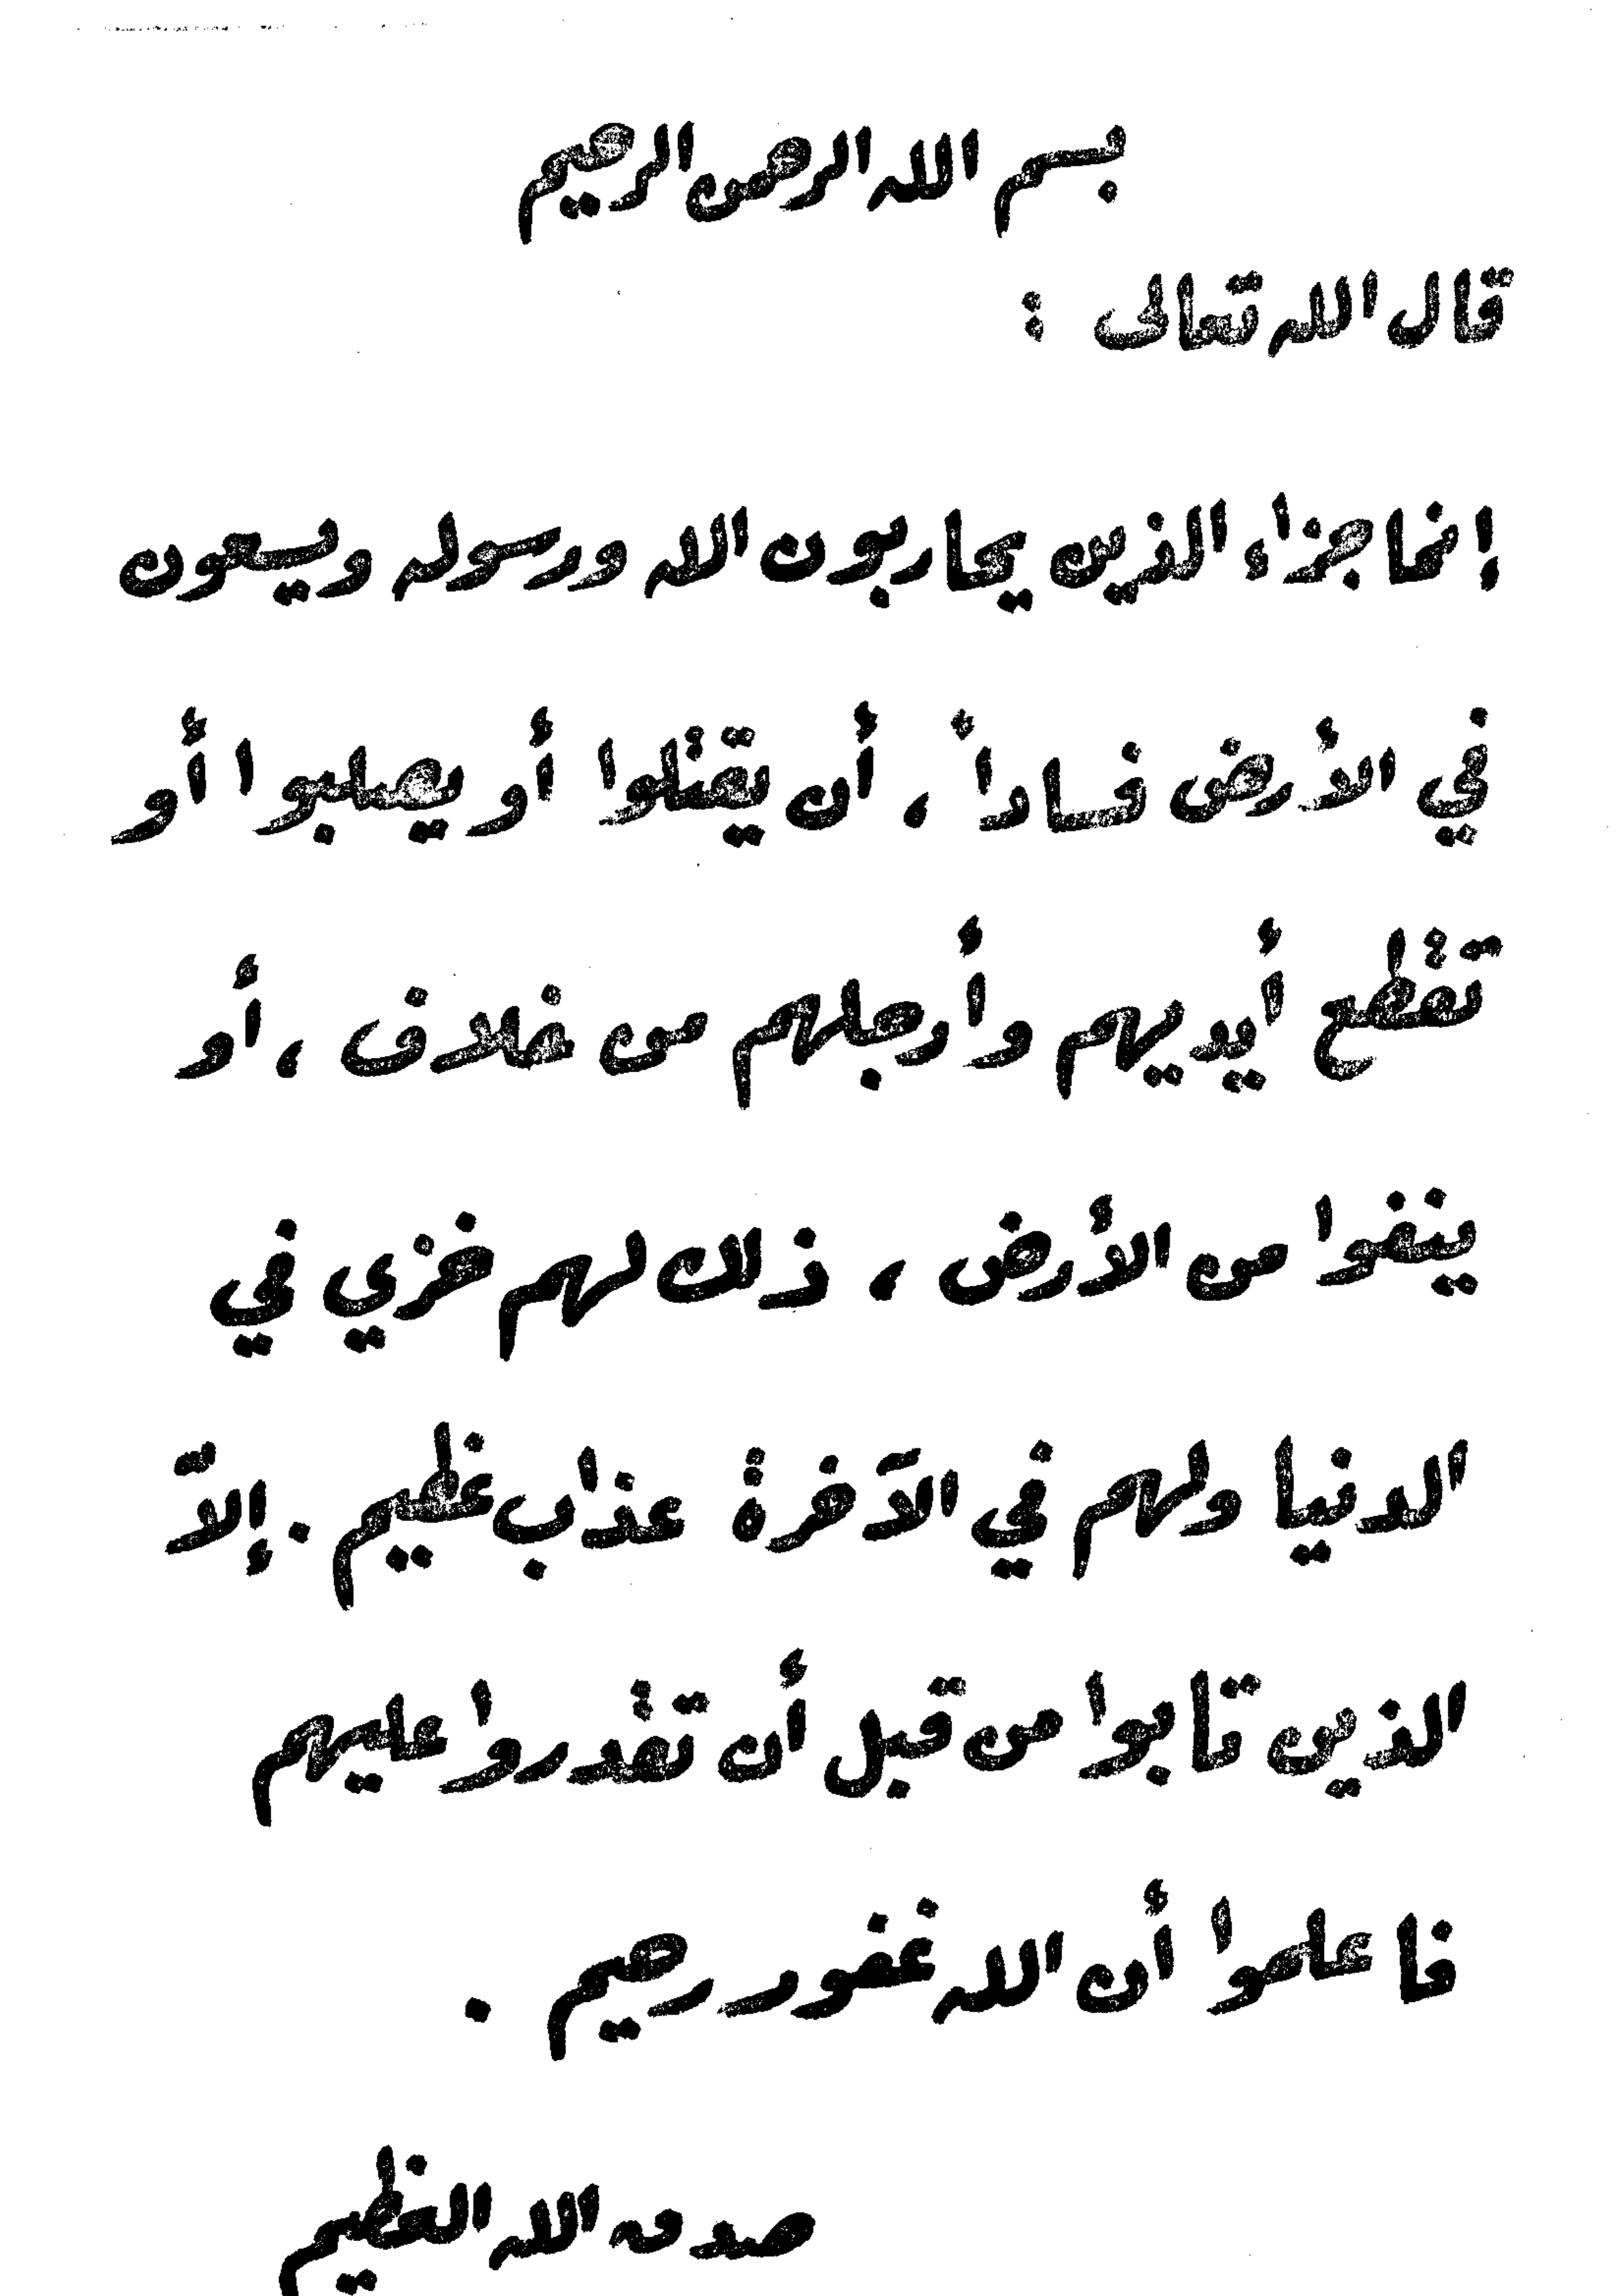 بسم الله الرحمن الرحيم
قال الله تعالى :
إنما جزاء الذين يحاربون الله ورسوله ويسعون
في الأرض فساداً ، أن يقتلوا أو يصلبوا أو
تقطع أيديهم وأرجلهم من خلاف ، أو
ينفوا من الأرض ، ذلك لهم خزي في
الدنيا ولهم في الآخرة عذاب عظيم . إلاّ
الذين تابوا من قبل أن تقدروا عليهم
فاعلموا أن الله غفور رحيم .
صدق الله العظيم